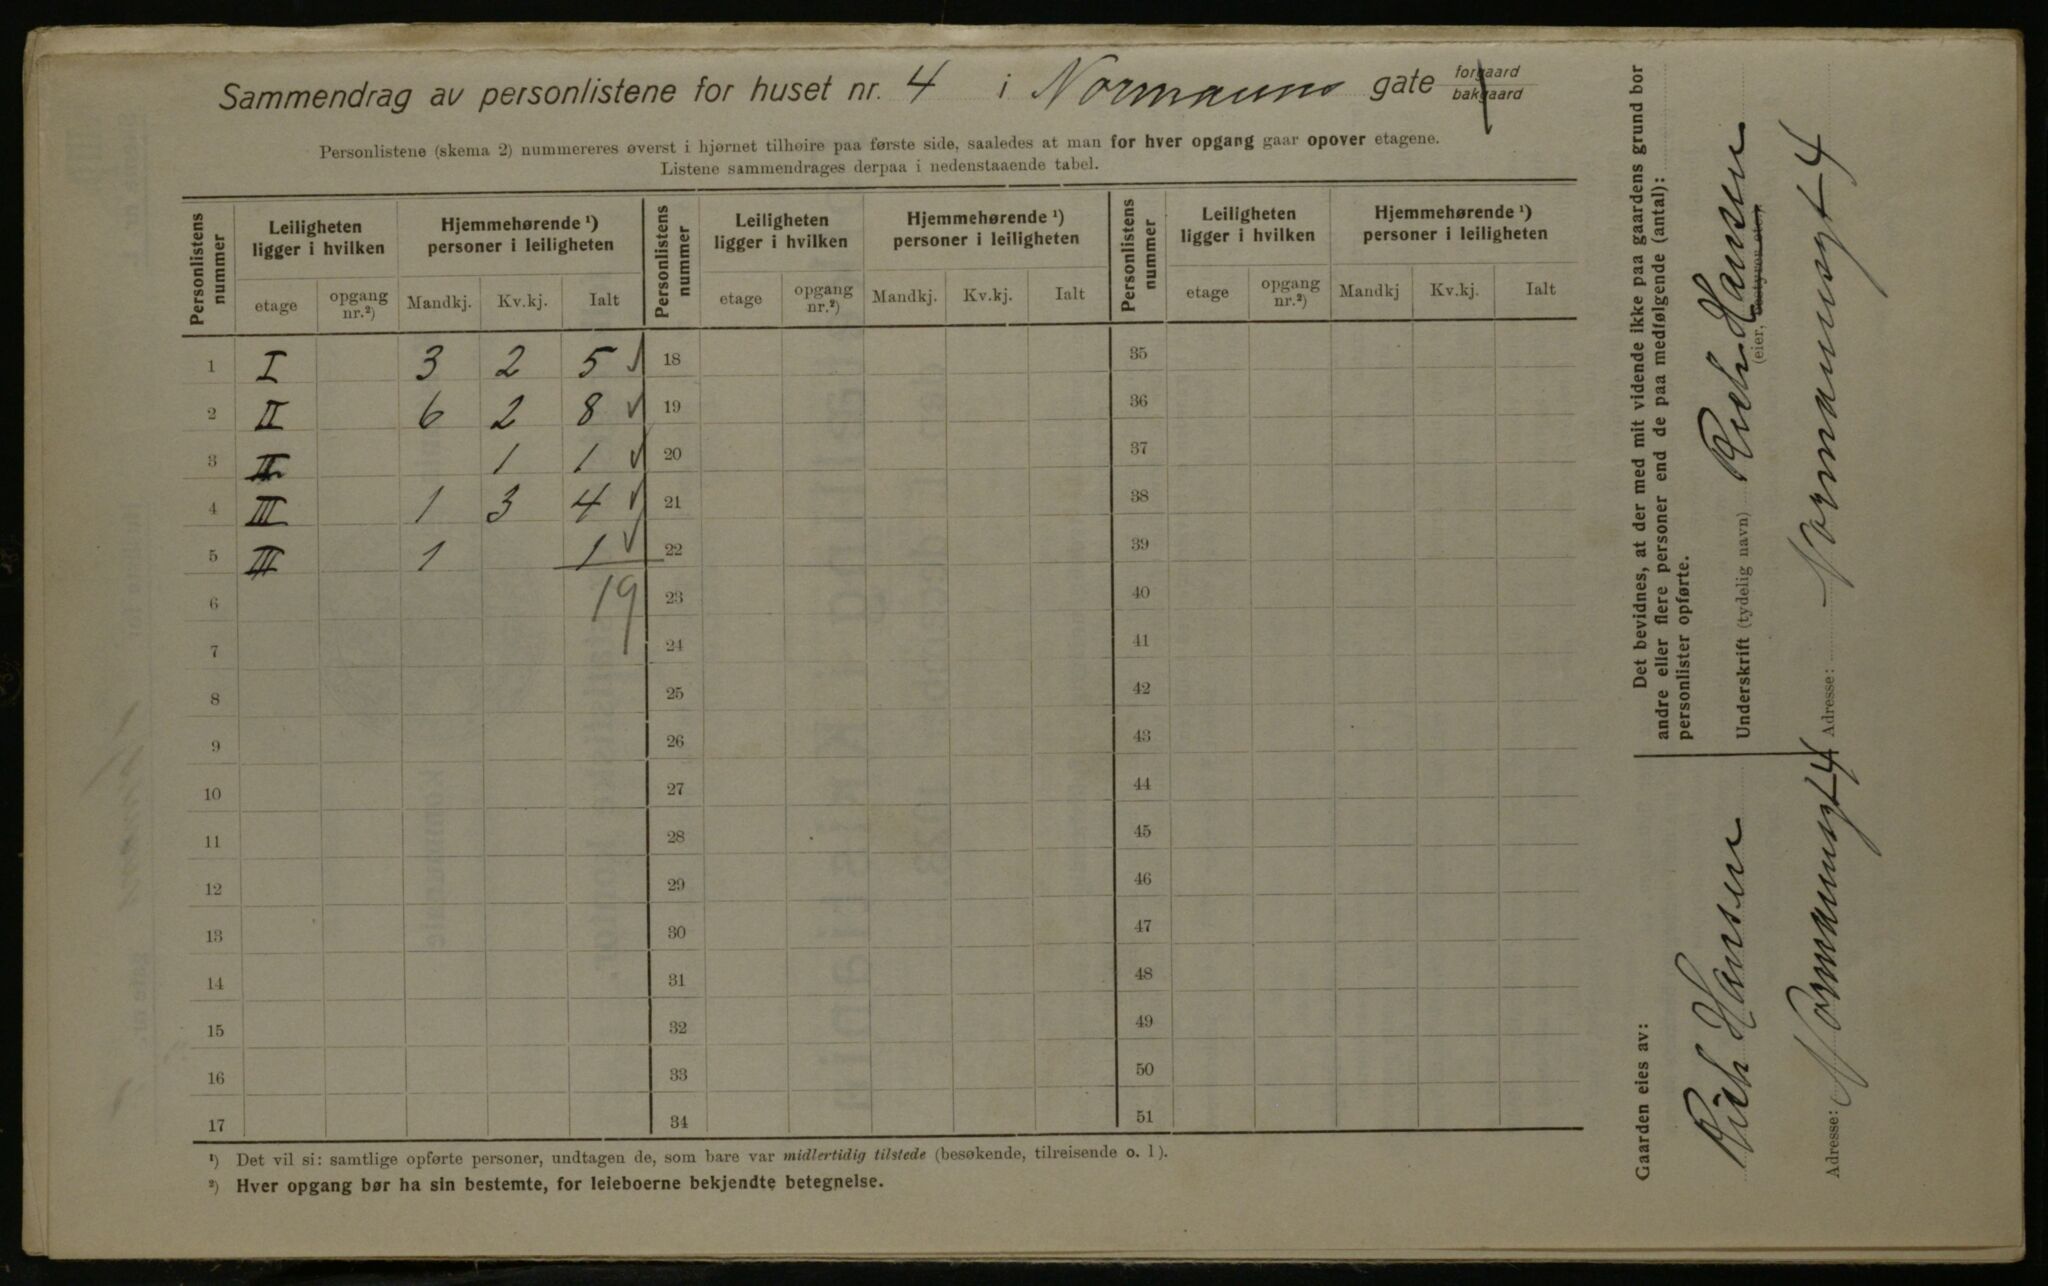 Sammendrag av personlistene for huset nr. 4 i Normanns gate forgaard bakgaard
Personlistene (skema 2) nummereres øverst i hjørnet tilhøire paa første side, saaledes at man for hver opgang gaar opover etagene.
Listene sammendrages derpaa i nedenstaaende tabel.
Personlistens nummer | Leiligheten ligger i hvilken | Hjemmehørende ¹) personer i leiligheten | Personlistens nummer | Leiligheten ligger i hvilken | Hjemmehørende ¹) personer i leiligheten | Personlistens nummer | Leiligheten ligger i hvilken | Hjemmehørende ¹) personer i leiligheten
etage | opgang nr.²) | Mandkj. | Kv.kj. | Ialt | etage | opgang nr.²) | Mandkj. | Kv.kj. | Ialt | etage | opgang nr.²) | Mandkj | Kv.kj. | Ialt
1 I 3 2 5 ✓ 18 35
2 II 6 2 8 ✓ 19 36
3 II 1 1 ✓ 20 37
4 III 1 3 4 ✓ 21 38
5 III 1 1 ✓ 22 39
6 19 23 40
7 24 41
8 25 42
9 26 43
10 27 44
11 28 45
12 29 46
13 30 47
14 31 48
15 32 49
16 33 50
17 34 51
¹) Det vil si: samtlige opførte personer, undtagen de, som bare var midlertidig tilstede (besøkende, tilreisende o. l).
²) Hver opgang bør ha sin bestemte, for leieboerne bekjendte betegnelse.
Det bevidnes, at der med mit vidende ikke paa gaardens grund bor
andre eller flere personer end de paa medfølgende (antal):
personlister opførte.
Underskrift (tydelig navn) Rich Hansen
(eier, bestyrer etc.)
Adresse: Normannsgt 4
Gaarden eies av:
Rich Hansen
Adresse: Normannsgt 4